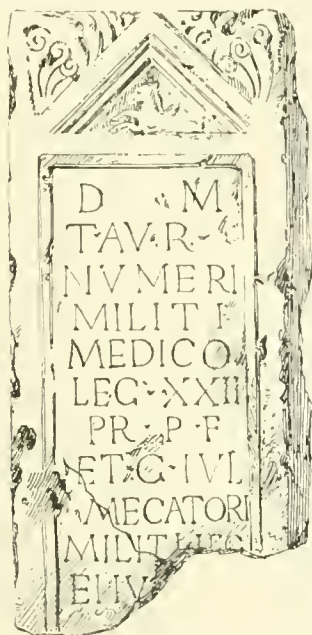 D M
T·AV·R·
NVMERI
MILITI
MEDICO
LEG·XXII
PR·P·F
ET·G·IVL
AMECATORI
MILITI LEG